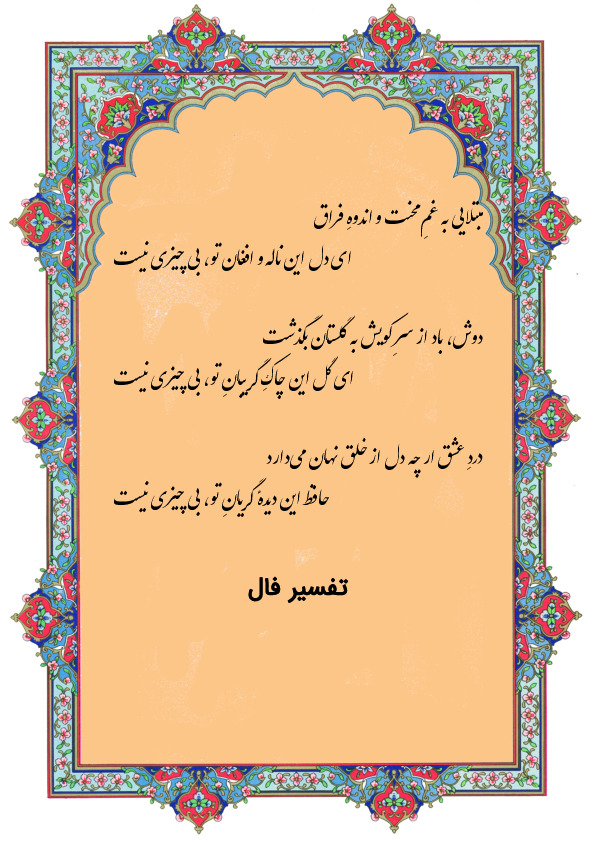 مبتلایی به غمِ محنت و اندوهِ فراق
ای دل این ناله و افغان تو، بی چیزی نیست
دوش، باد از سرِ کویش به گلستان بگذشت
ای گل این چاکِ گریبانِ تو، بی چیزی نیست
دردِ عشق ار چه دل از خلق نهان می‌دارد
حافظ این دیدهٔ گریانِ تو، بی چیزی نیست
تفسیر فال